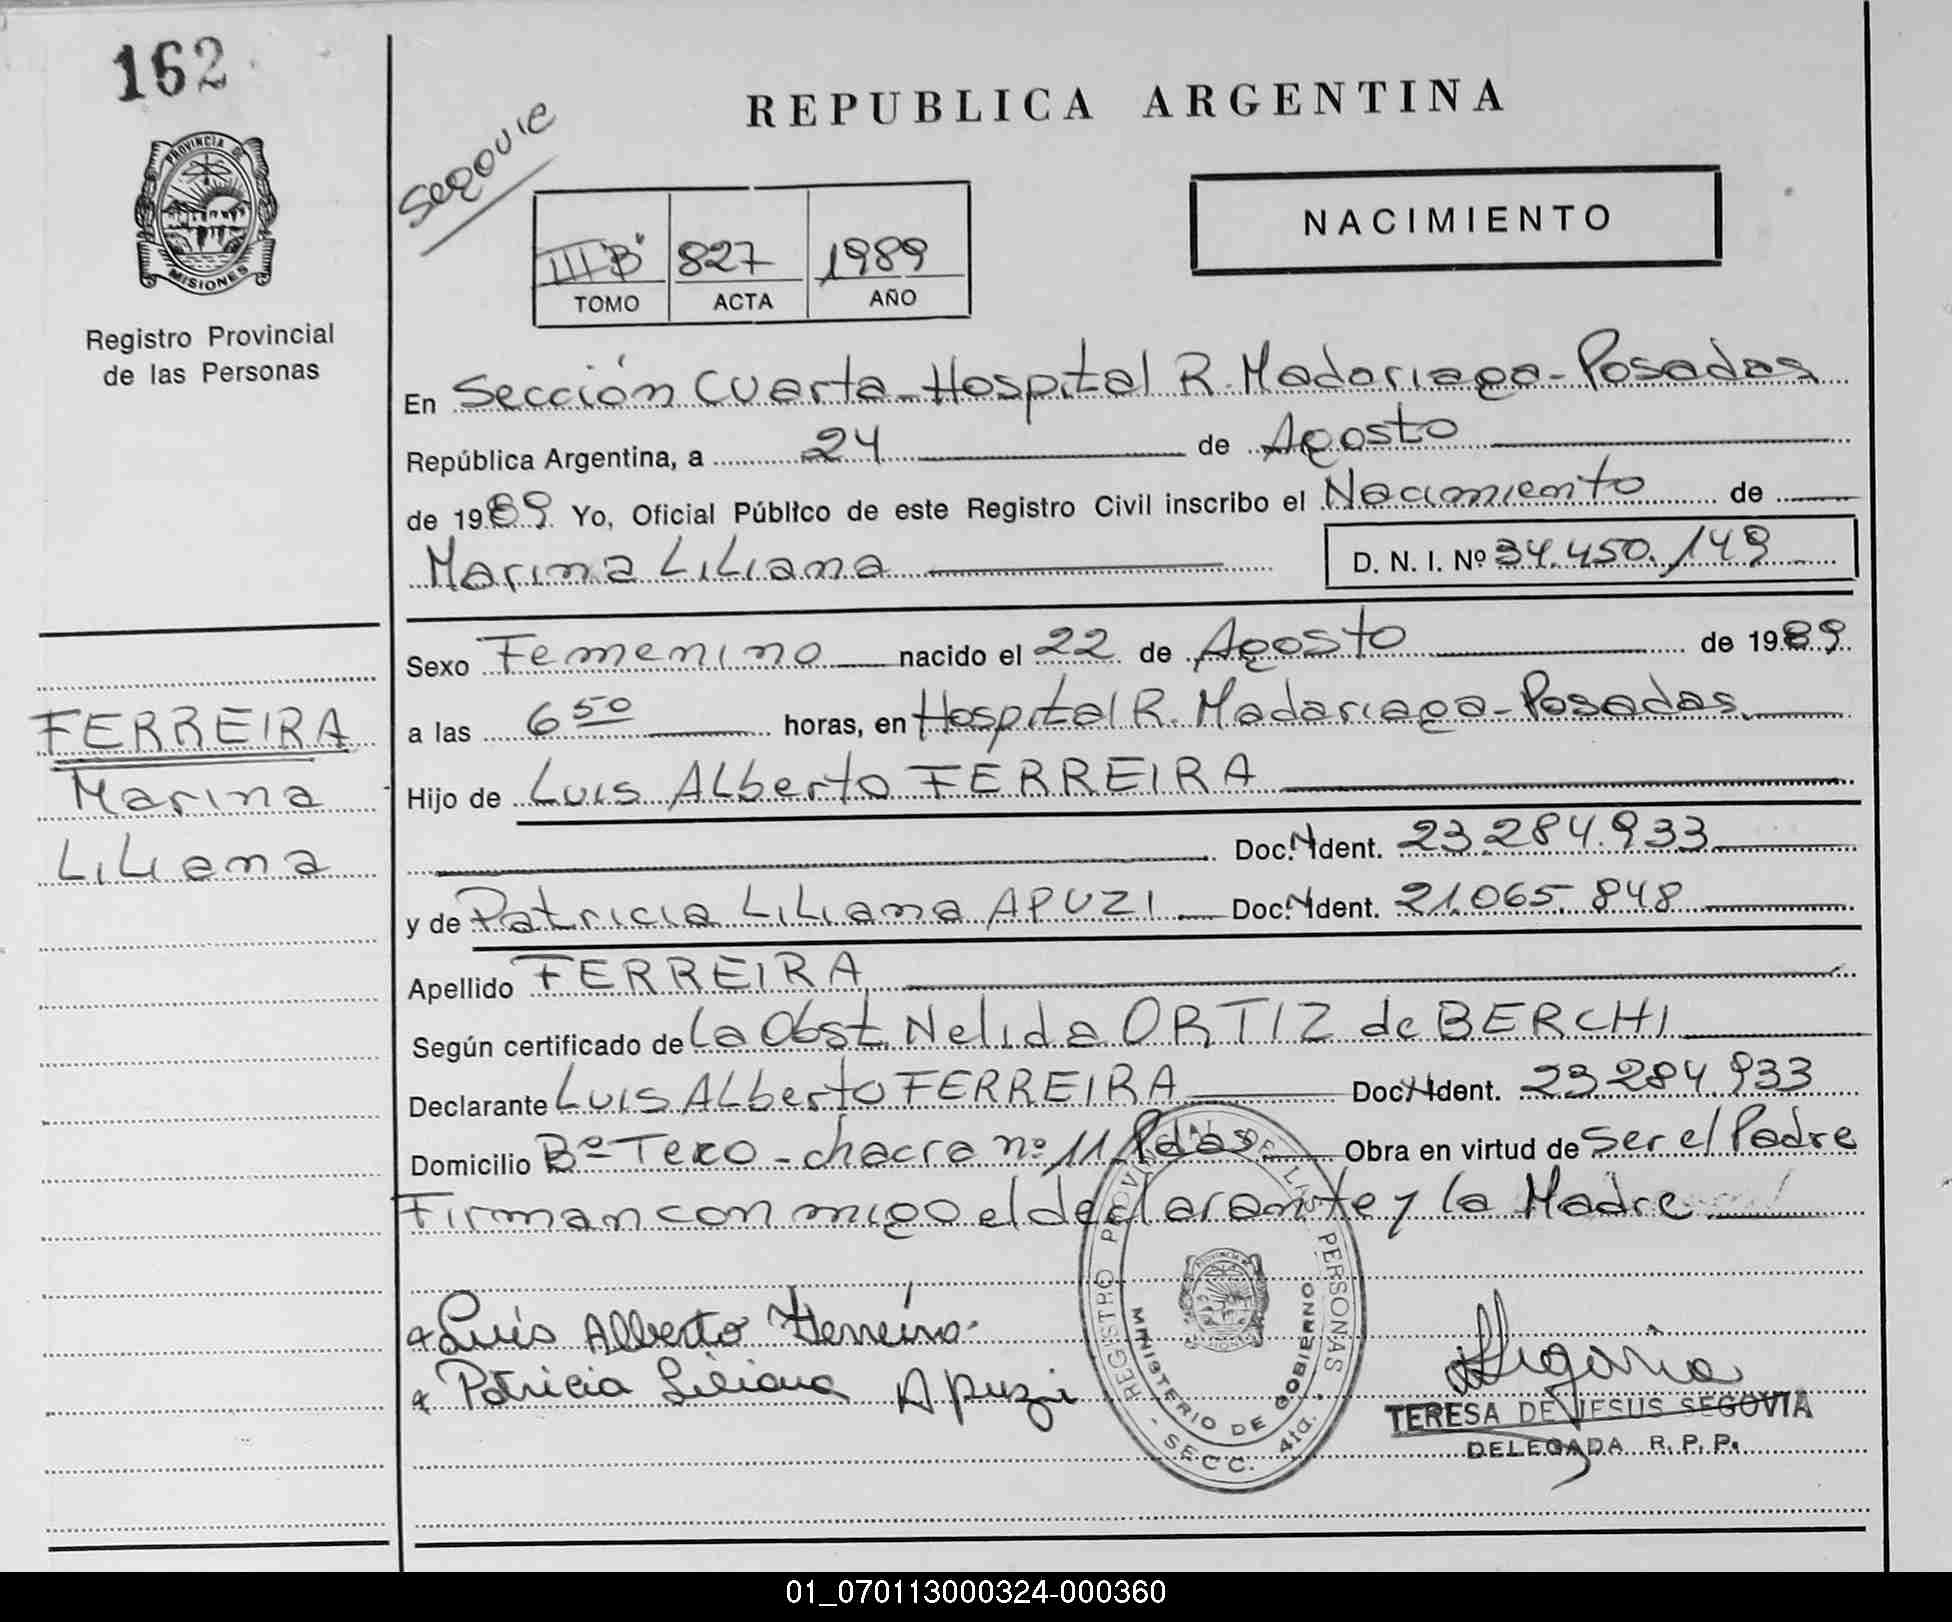 162
Segovie
REPUBLICA ARGENTINA
PROVINCIA DE
MISIONES
Registro Provincial
de las Personas
NACIMIENTO
III"B" 827 1989
TOMO ACTA AÑO
En Sección Cuarta - Hospital R. Madariaga - Posadas
República Argentina, a 24 de Agosto
de 1989 Yo, Oficial Público de este Registro Civil inscribo el Nacimiento de
Marina Liliana D. N. I. Nº 34.450.149
Sexo Femenino nacido el 22 de Agosto de 1989
a las 6 50 horas, en Hospital R. Madariaga - Posadas
FERREIRA
Marina
Liliana
Hijo de Luis Alberto FERREIRA
Doc. N Ident. 23.284.933
y de Patricia Liliana APUZI Doc. N Ident. 21.065.848
Apellido FERREIRA
Según certificado de la Obst. Nelida ORTIZ de BERCHI
Declarante Luis Alberto FERREIRA Doc. N Ident. 23.284.933
Domicilio Bº Terco - chacra nº 11 Pdas Obra en virtud de Ser el Padre
Firman con migo el declarante y la Madre
Luis Alberto Ferreira
Patricia Liliana Apuzi
REGISTRO PROVINCIAL DE LAS PERSONAS
MINISTERIO DE GOBIERNO
- SECC. 4ta. -
TERESA DE JESUS SEGOVIA
DELEGADA R. P. P.
01_070113000324-000360